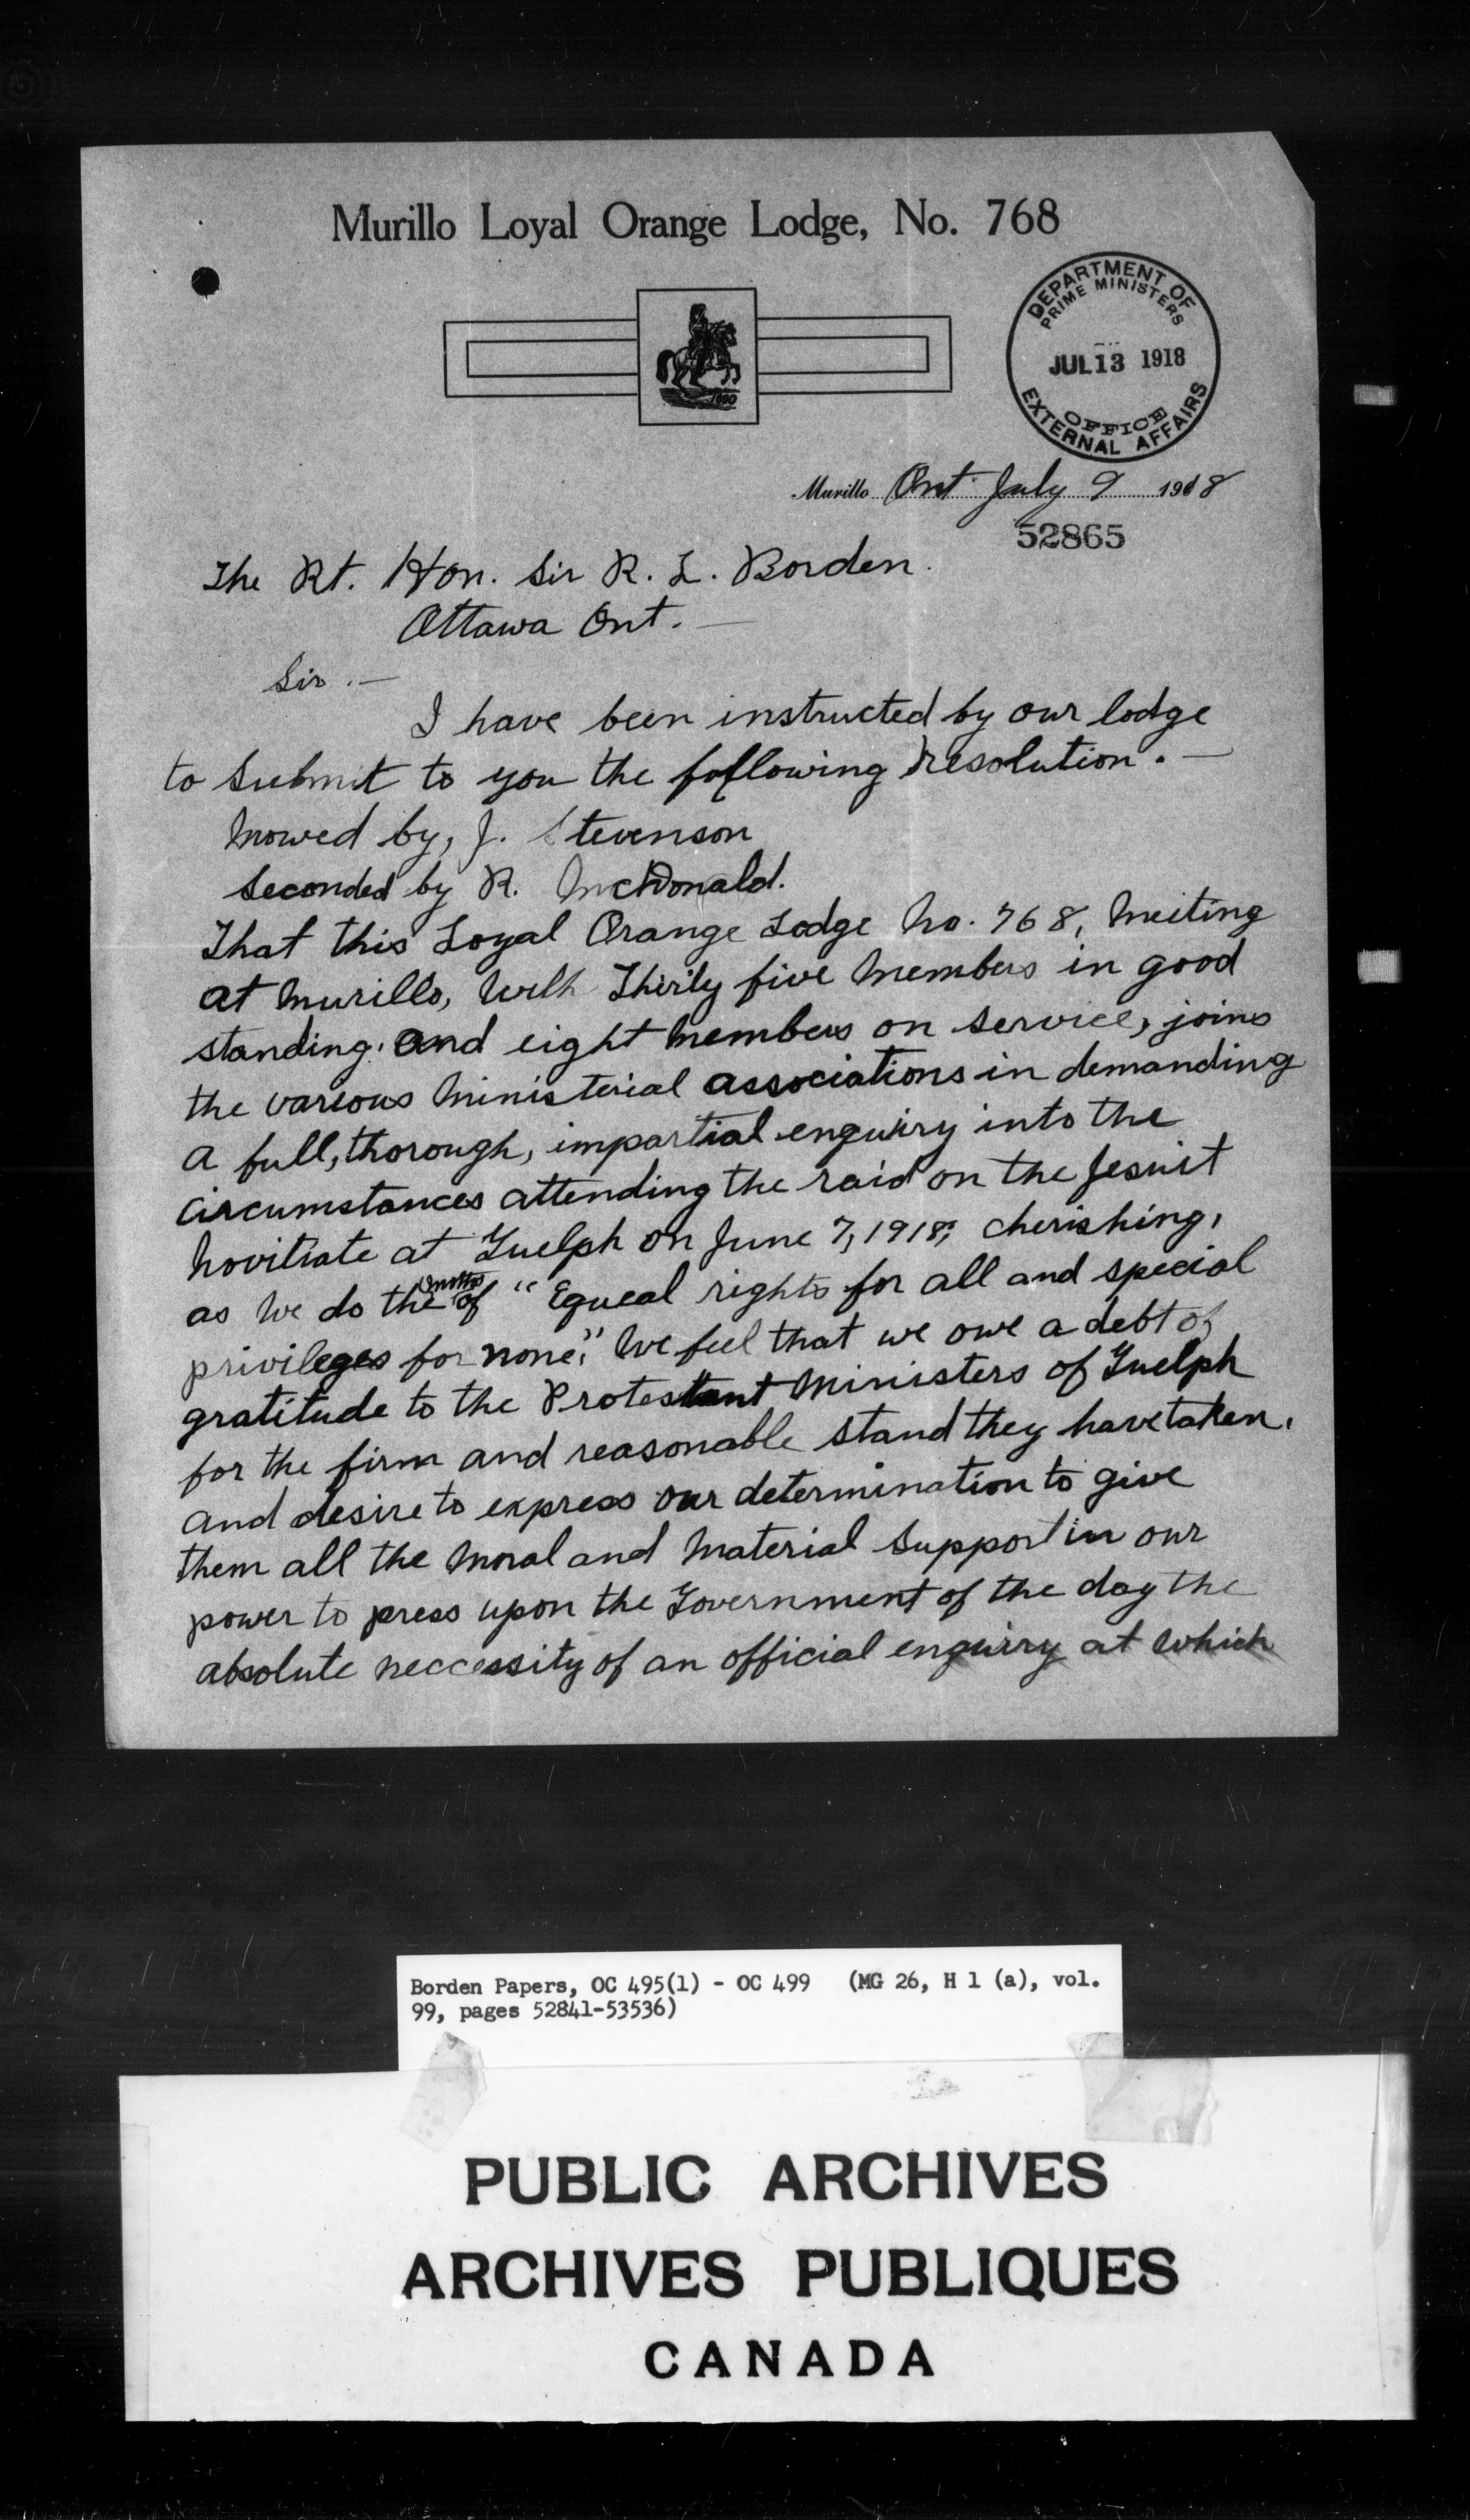 Murillo Loyal Orange Lodge, No. 768
1690
DEPARTMENT OF
PRIME MINISTERS
JUL 13 1918
OFFICE
EXTERNAL AFFAIRS
Murillo Ont July 9 1918
52865
The Rt. Hon. Sir R. L. Borden.
Ottawa Ont. —
Sir. —
I have been instructed by our lodge
to submit to you the following resolution. —
Moved by, J. Stevenson
Seconded by R. McDonald.
That this Loyal Orange Lodge No. 768, Meeting
at Murillo, With Thirty five Members in good
standing. and eight Members on service, joins
the various Ministerial associations in demanding
a full, thorough, impartial enquiry into the
circumstances attending the raid on the Jesuit
Novitiate at Guelph on June 7, 1918; cherishing,
as We do the motto of "Equeal rights for all and special
privileges for none," We feel that we owe a debt of
gratitude to the Protestant Ministers of Guelph
for the firm and reasonable stand they have taken,
and desire to express our determination to give
them all the Moral and Material Support in our
power to press upon the Government of the day the
absolute neccessity of an official enquiry at which
Borden Papers, OC 495(1) - OC 499 (MG 26, H 1 (a), vol.
99, pages 52841-53536)
PUBLIC ARCHIVES
ARCHIVES PUBLIQUES
CANADA